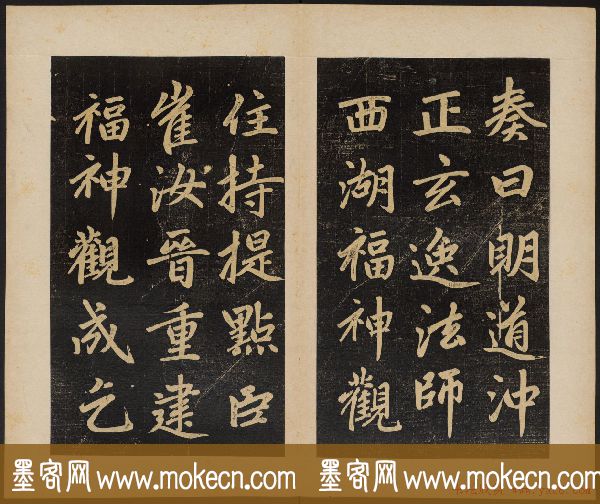 奏曰明道沖
正玄逸法師
西湖福神觀
住持提點臣
崔汝晉重建
福神觀成乞
墨客网 www.mokecn.com 墨客网 www.mokecn.com